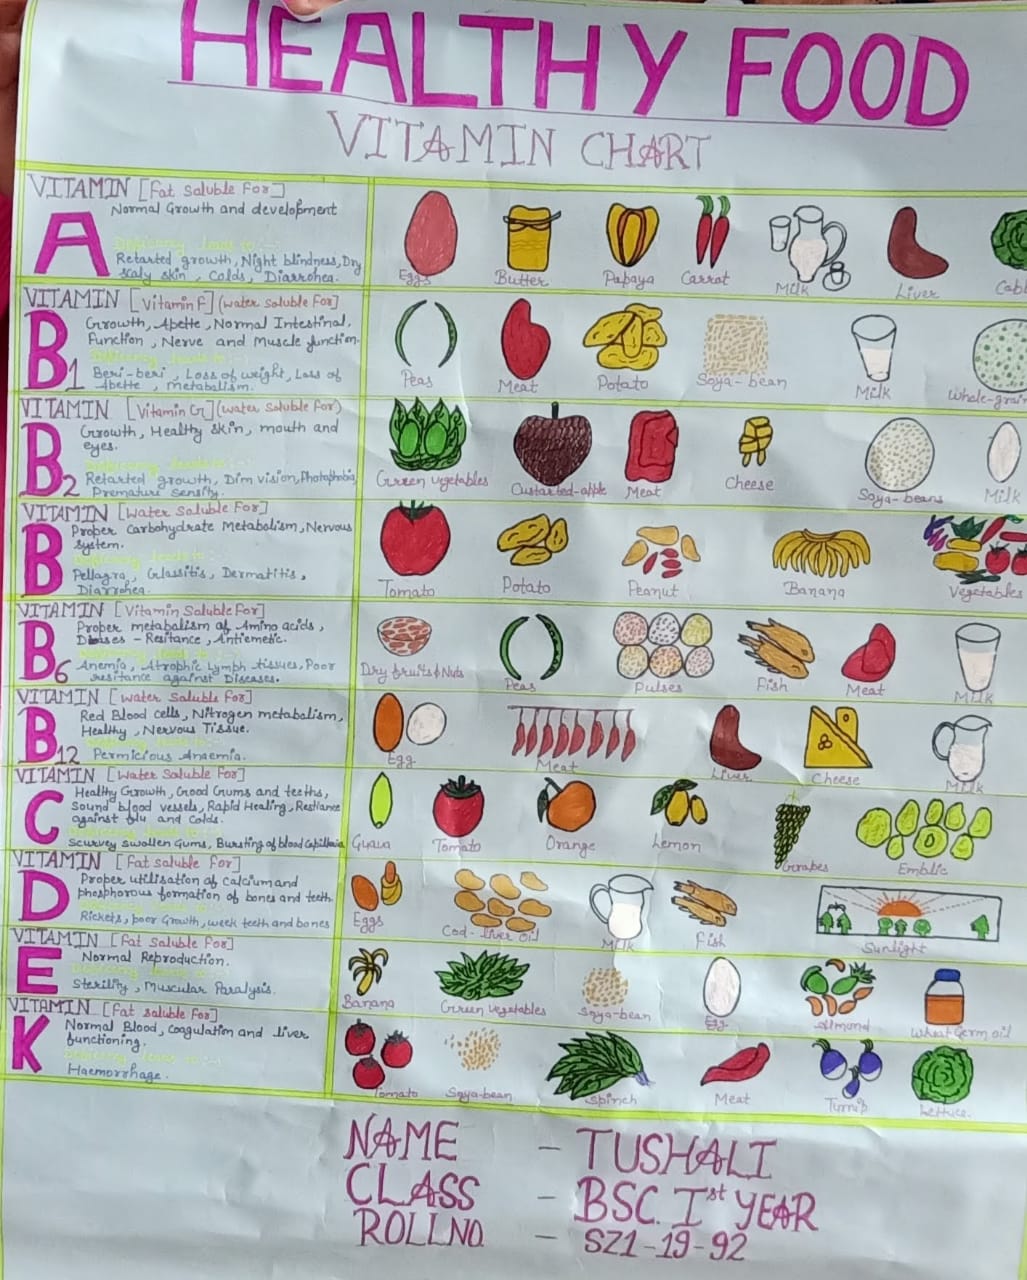 HEALTHY FOOD
VITAMIN CHART
VITAMIN [Fat Saluble For]
A
Normal Growth and development
Deficiency leads to :-
Retarted growth, Night blindness, Dry
scaly skin, Colds, Diarrohea.
Eggs Butter Papaya Carrot Milk Liver Cab
VITAMIN [Vitamin F] (water Saluble For]
B1
Growth, Apette, Normal Intestinal,
Function, Nerve and Muscle function.
Deficiency leads to :-
Beri-beri, Loss of weight, Loss of
Apette, metabalism.
Peas Meat Potato Soya-bean Milk Whole-grain
VITAMIN [Vitamin G] (water Saluble For)
B2
Growth, Healthy skin, mouth and
eyes.
Deficiency leads to :-
Retarted growth, Dim vision, Photophobia,
Premature Sensity.
Green vegetables Custarted-apple Meat Cheese Soya-beans Milk
VITAMIN [Water Saluble For]
B
Proper Carbohydrate Metabolism, Nervous
system.
Deficiency leads to :
Pellagra, Glassitis, Dermatitis,
Diarrohea.
Tomato Potato Peanut Banana Vegetables
VITAMIN [Vitamin Soluble For]
B6
Proper metabalism of Amino acids,
Diseses - Resitance, Antiemetic.
Deficiency lead to :-
Anemia, Atrophic Lymph tissues, Poor
resitance against Diseases.
Dry fruits & Nuts Peas Pulses Fish Meat Milk
VITAMIN [Water Saluble For]
B12
Red Blood Cells, Nitrogen metabalism,
Healthy, Nervous Tissue.
Deficiency leads to :-
Permicious Anaemia.
Egg Meat Liver Cheese Milk
VITAMIN [Water Saluble For]
C
Healthy Growth, Good Gums and teeths,
Sound blood vessels, Rapid Healing, Restiance
against flu and Colds.
Deficiency leads to :-
Scurvey swollen Gums, Bursting of blood Capillaia
Guava Tomato Orange Lemon Grapes Emblic
VITAMIN [Fat saluble For]
D
Proper utilisation of Calcium and
phosphorous formation of bones and teeth.
Deficiency leads to :-
Rickets, poor Growth, week teeth and bones
Eggs Cod-liver oil Milk Fish Sunlight
VITAMIN [Fat saluble For]
E
Normal Reproduction.
Deficiency leads to :-
Sterility, Muscular Paralysis.
Banana Green vegetables Soya-bean Egg Almond Wheat Germ oil
VITAMIN [Fat saluble For]
K
Normal Blood, Coagulation and liver
functioning.
Deficiency leads to :-
Haemorrhage.
Tomato Soya-bean Spinch Meat Turnip Lettuce
NAME - TUSHALI
CLASS - BSC. Ist YEAR
ROLLNO. - SZ1-19-92